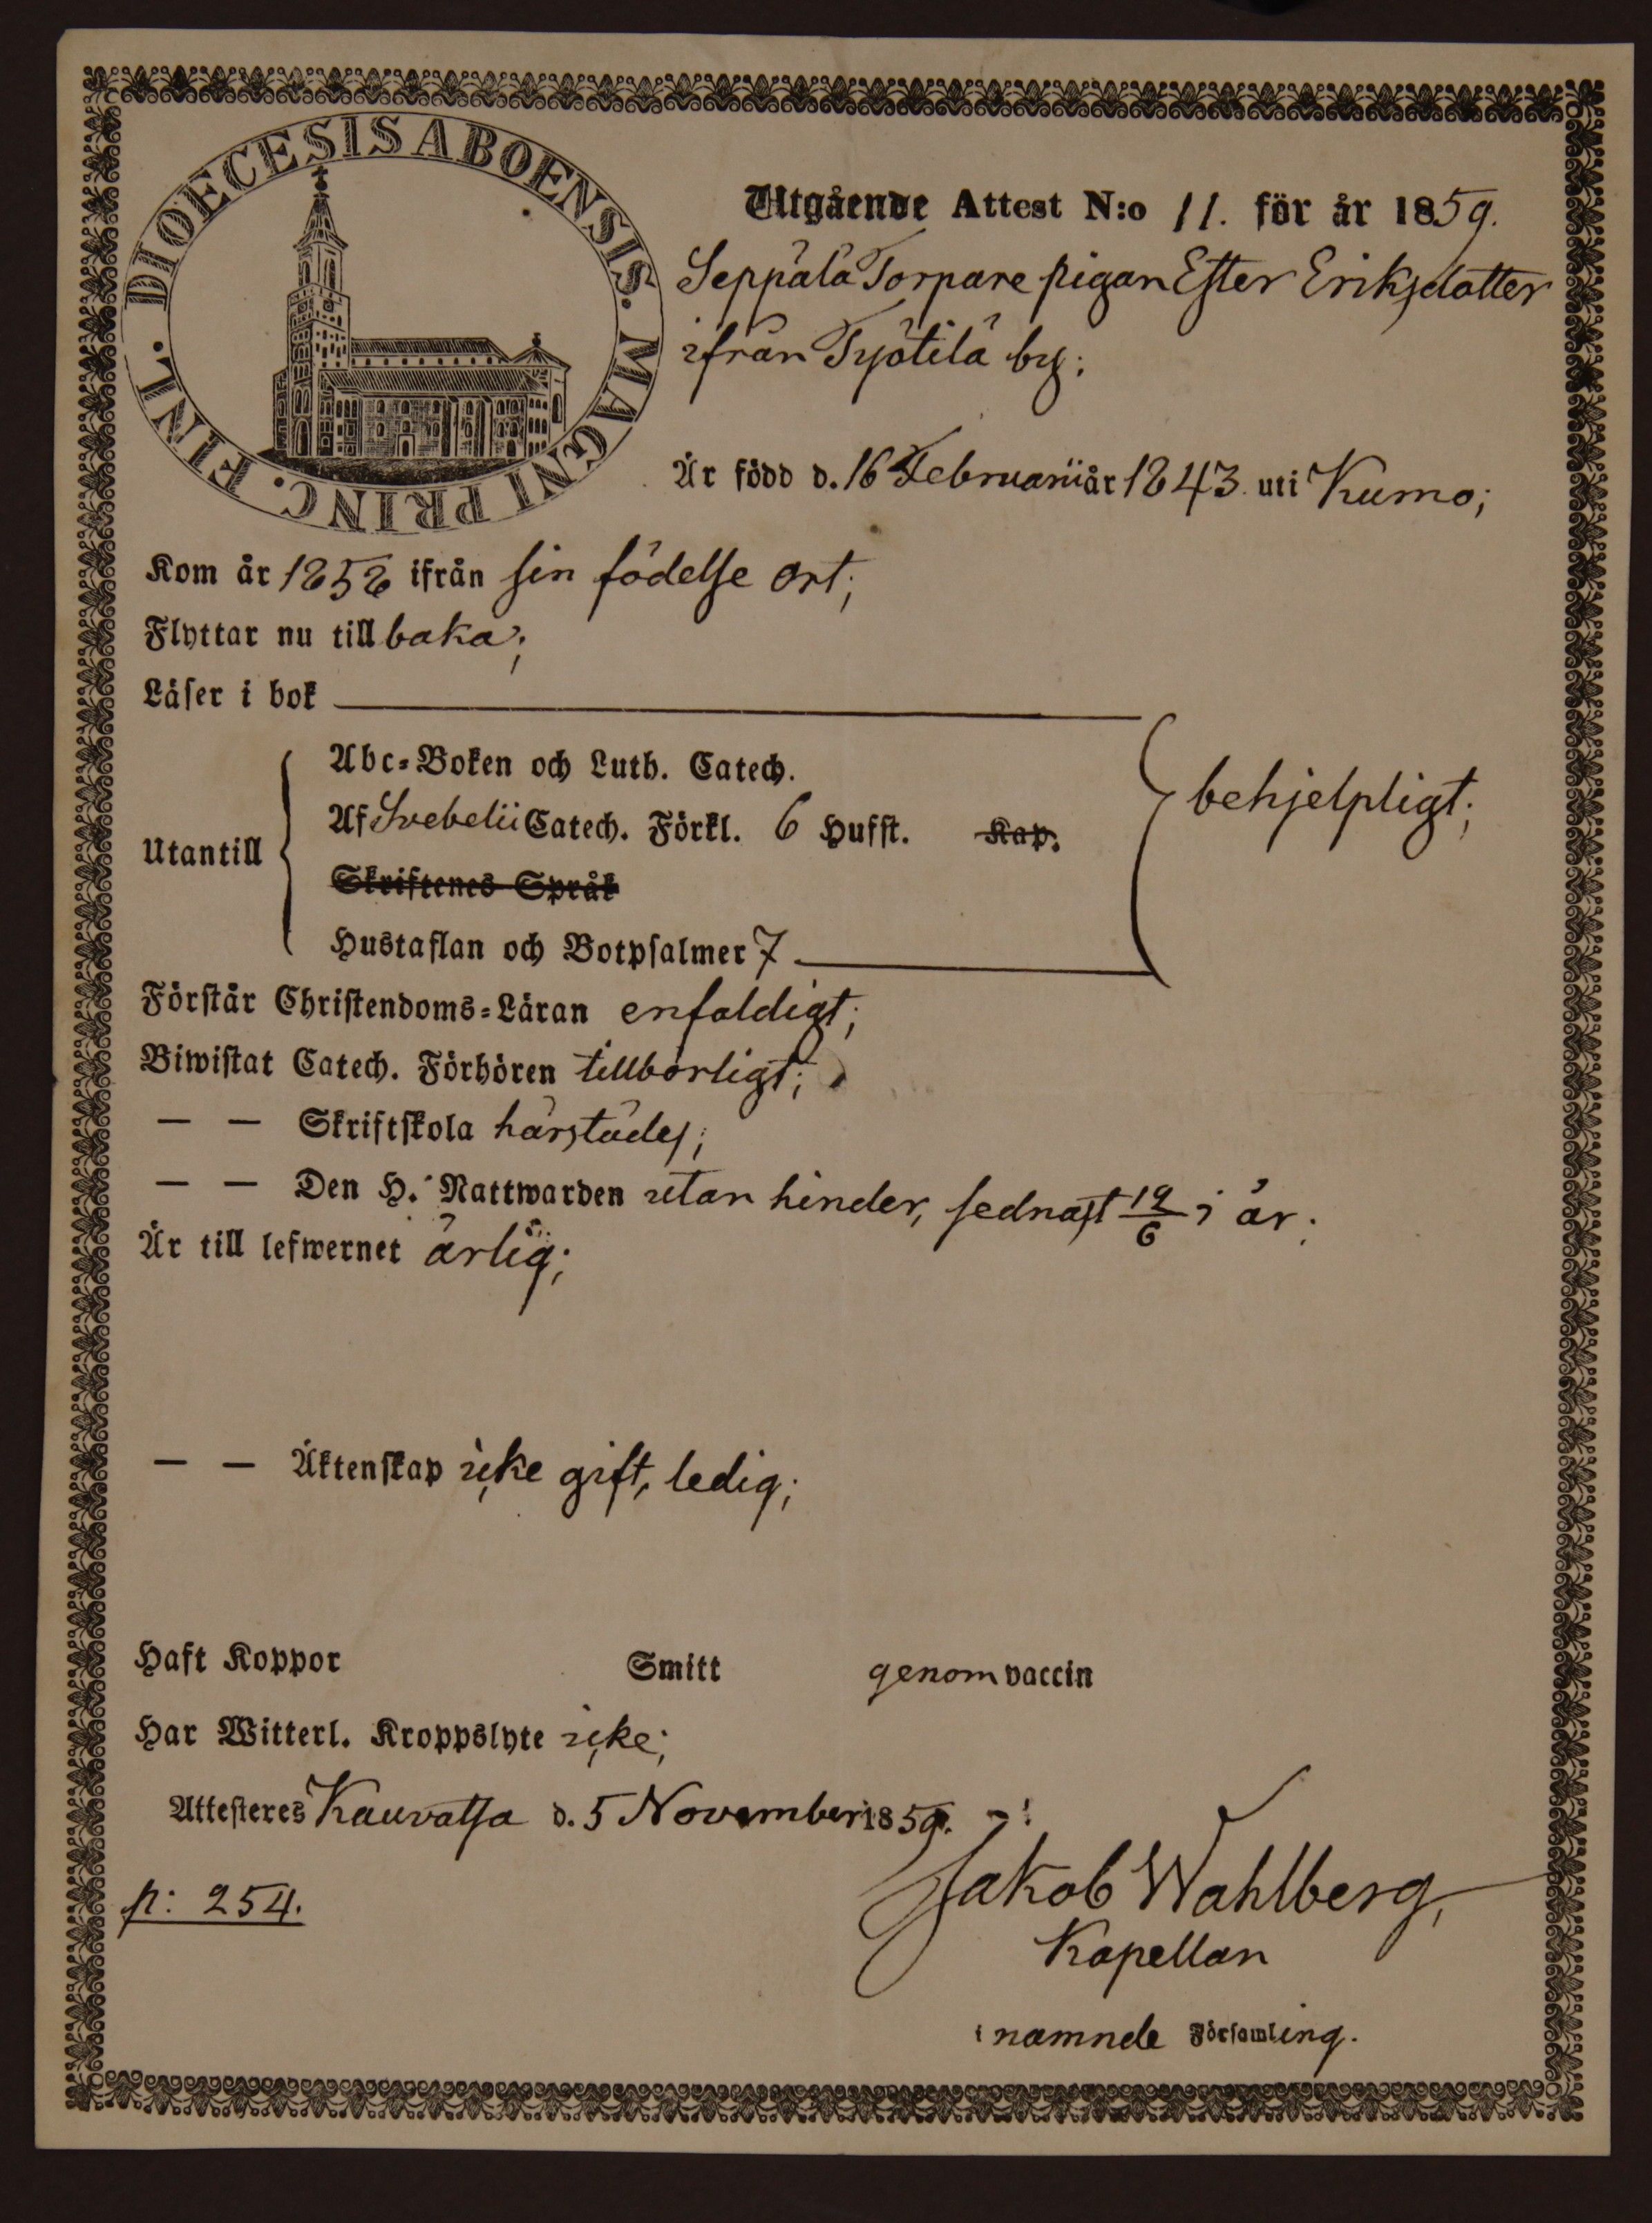 DIOECESIS ABOENSIS. MAGNI PRINC. FINL.
Utgående Attest N:o 11. för år 1859.
Seppälä Torpare pigan Ester Eriksdotter
ifrån Työtilä by;
Är född d. 16 Februarii år 1843 uti Kumo;
Kom år 1858 ifrån sin födelse ort;
Flyttar nu till baka;
Läser i bok
Abc-Boken och Luth. Catech.
behjelpligt;
Af Svebelii Catech. Förkl. 6 Hufst. Kap.
Utantill
Skriftenes Språk
Hustaflan och Botpsalmer 7
Förstår Christendoms-Läran enfaldigt;
Biwistat Catech. Förhören tillbörligt;
— — Skriftskola härstädes;
— — Den H. Nattwarden utan hinder, sednast 19/6 i år;
Är till lefwernet ärlig;
— — Äktenskap icke gift, ledig;
Haft Koppor Smitt genom vaccin
Har Witterl. Kroppslyte icke;
Attesteres Kauvatsa d. 5 November 1859.
Jakob Wahlberg,
p: 254.
Kapellan
i namnde Församling.